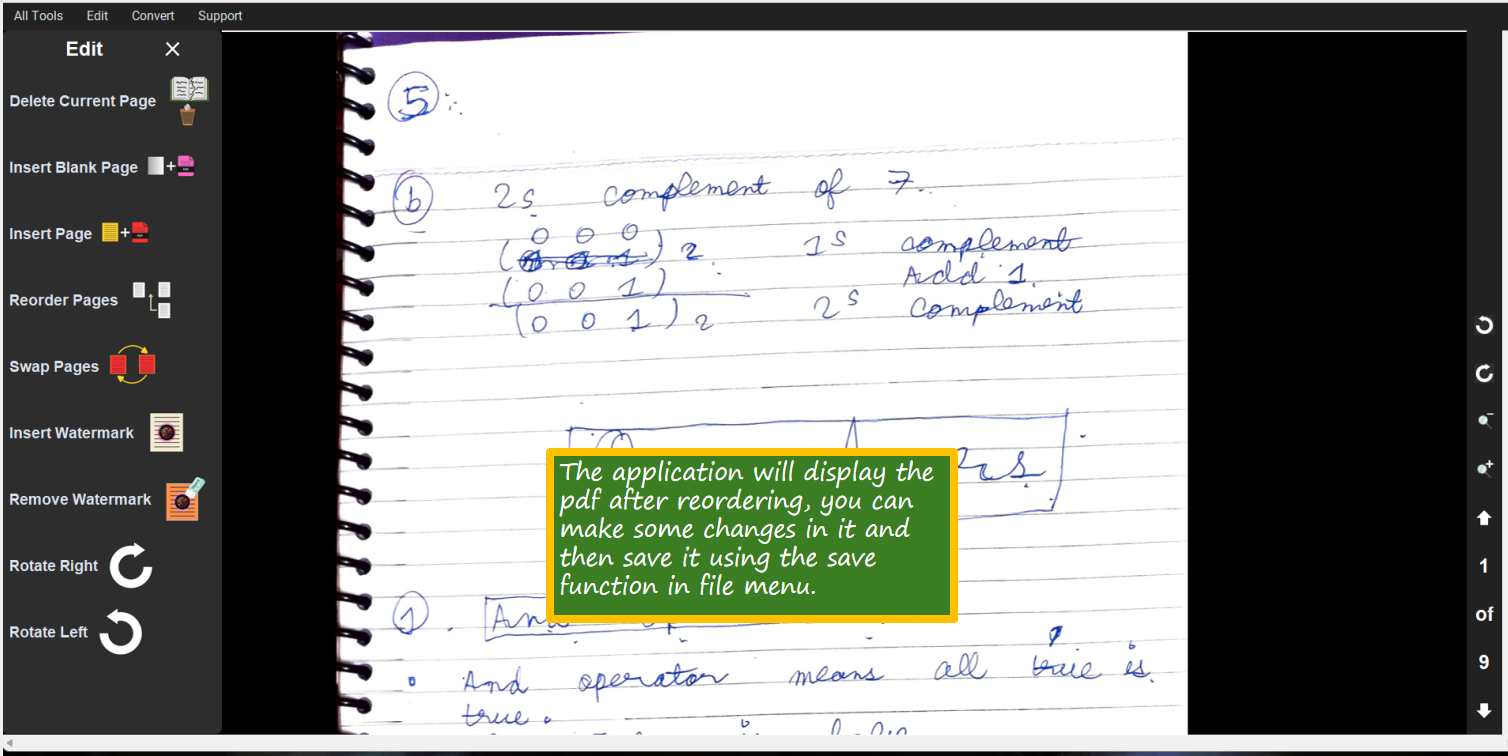 All Tools Edit Convert Support
Edit
Delete Current Page
Insert Blank Page
Insert Page
Reorder Pages
Swap Pages
Insert Watermark
Remove Watermark
Rotate Right
Rotate Left
5
b 2s complement of 7.
0 0 0
( ) 2 1s complement
Add 1.
(0 0 1)
(0 0 1) 2 2s complement
The application will display the
pdf after reordering, you can
make some changes in it and
then save it using the save
function in file menu.
1.
And operator means all true is
true.
1
of
9